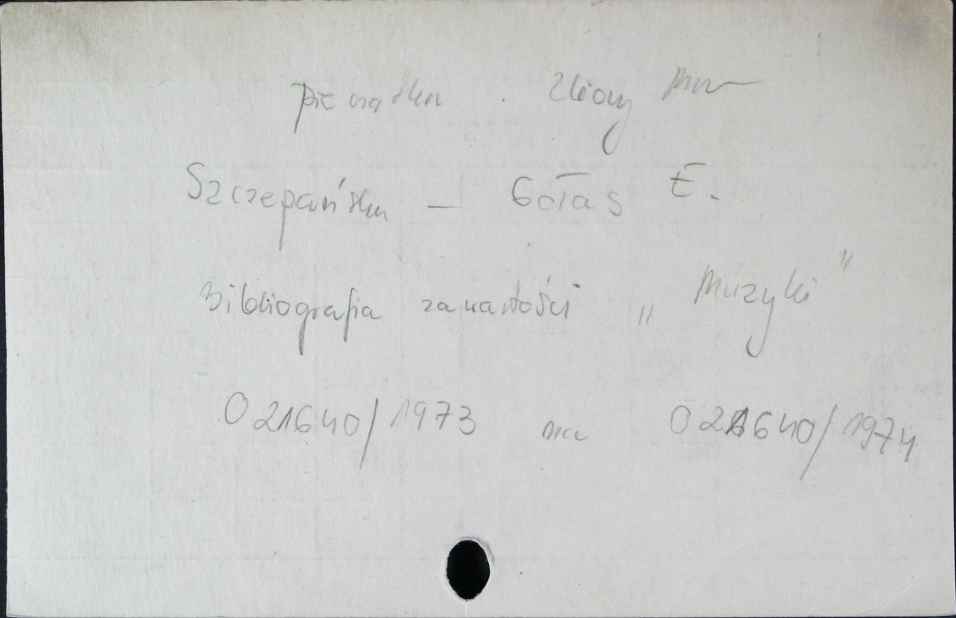 pieczątka . Zbiory Muz
Szczepańska – Gołąs E.
Bibliografia zawartości „Muzyki"
O 21640/1973 na O 21640/1974